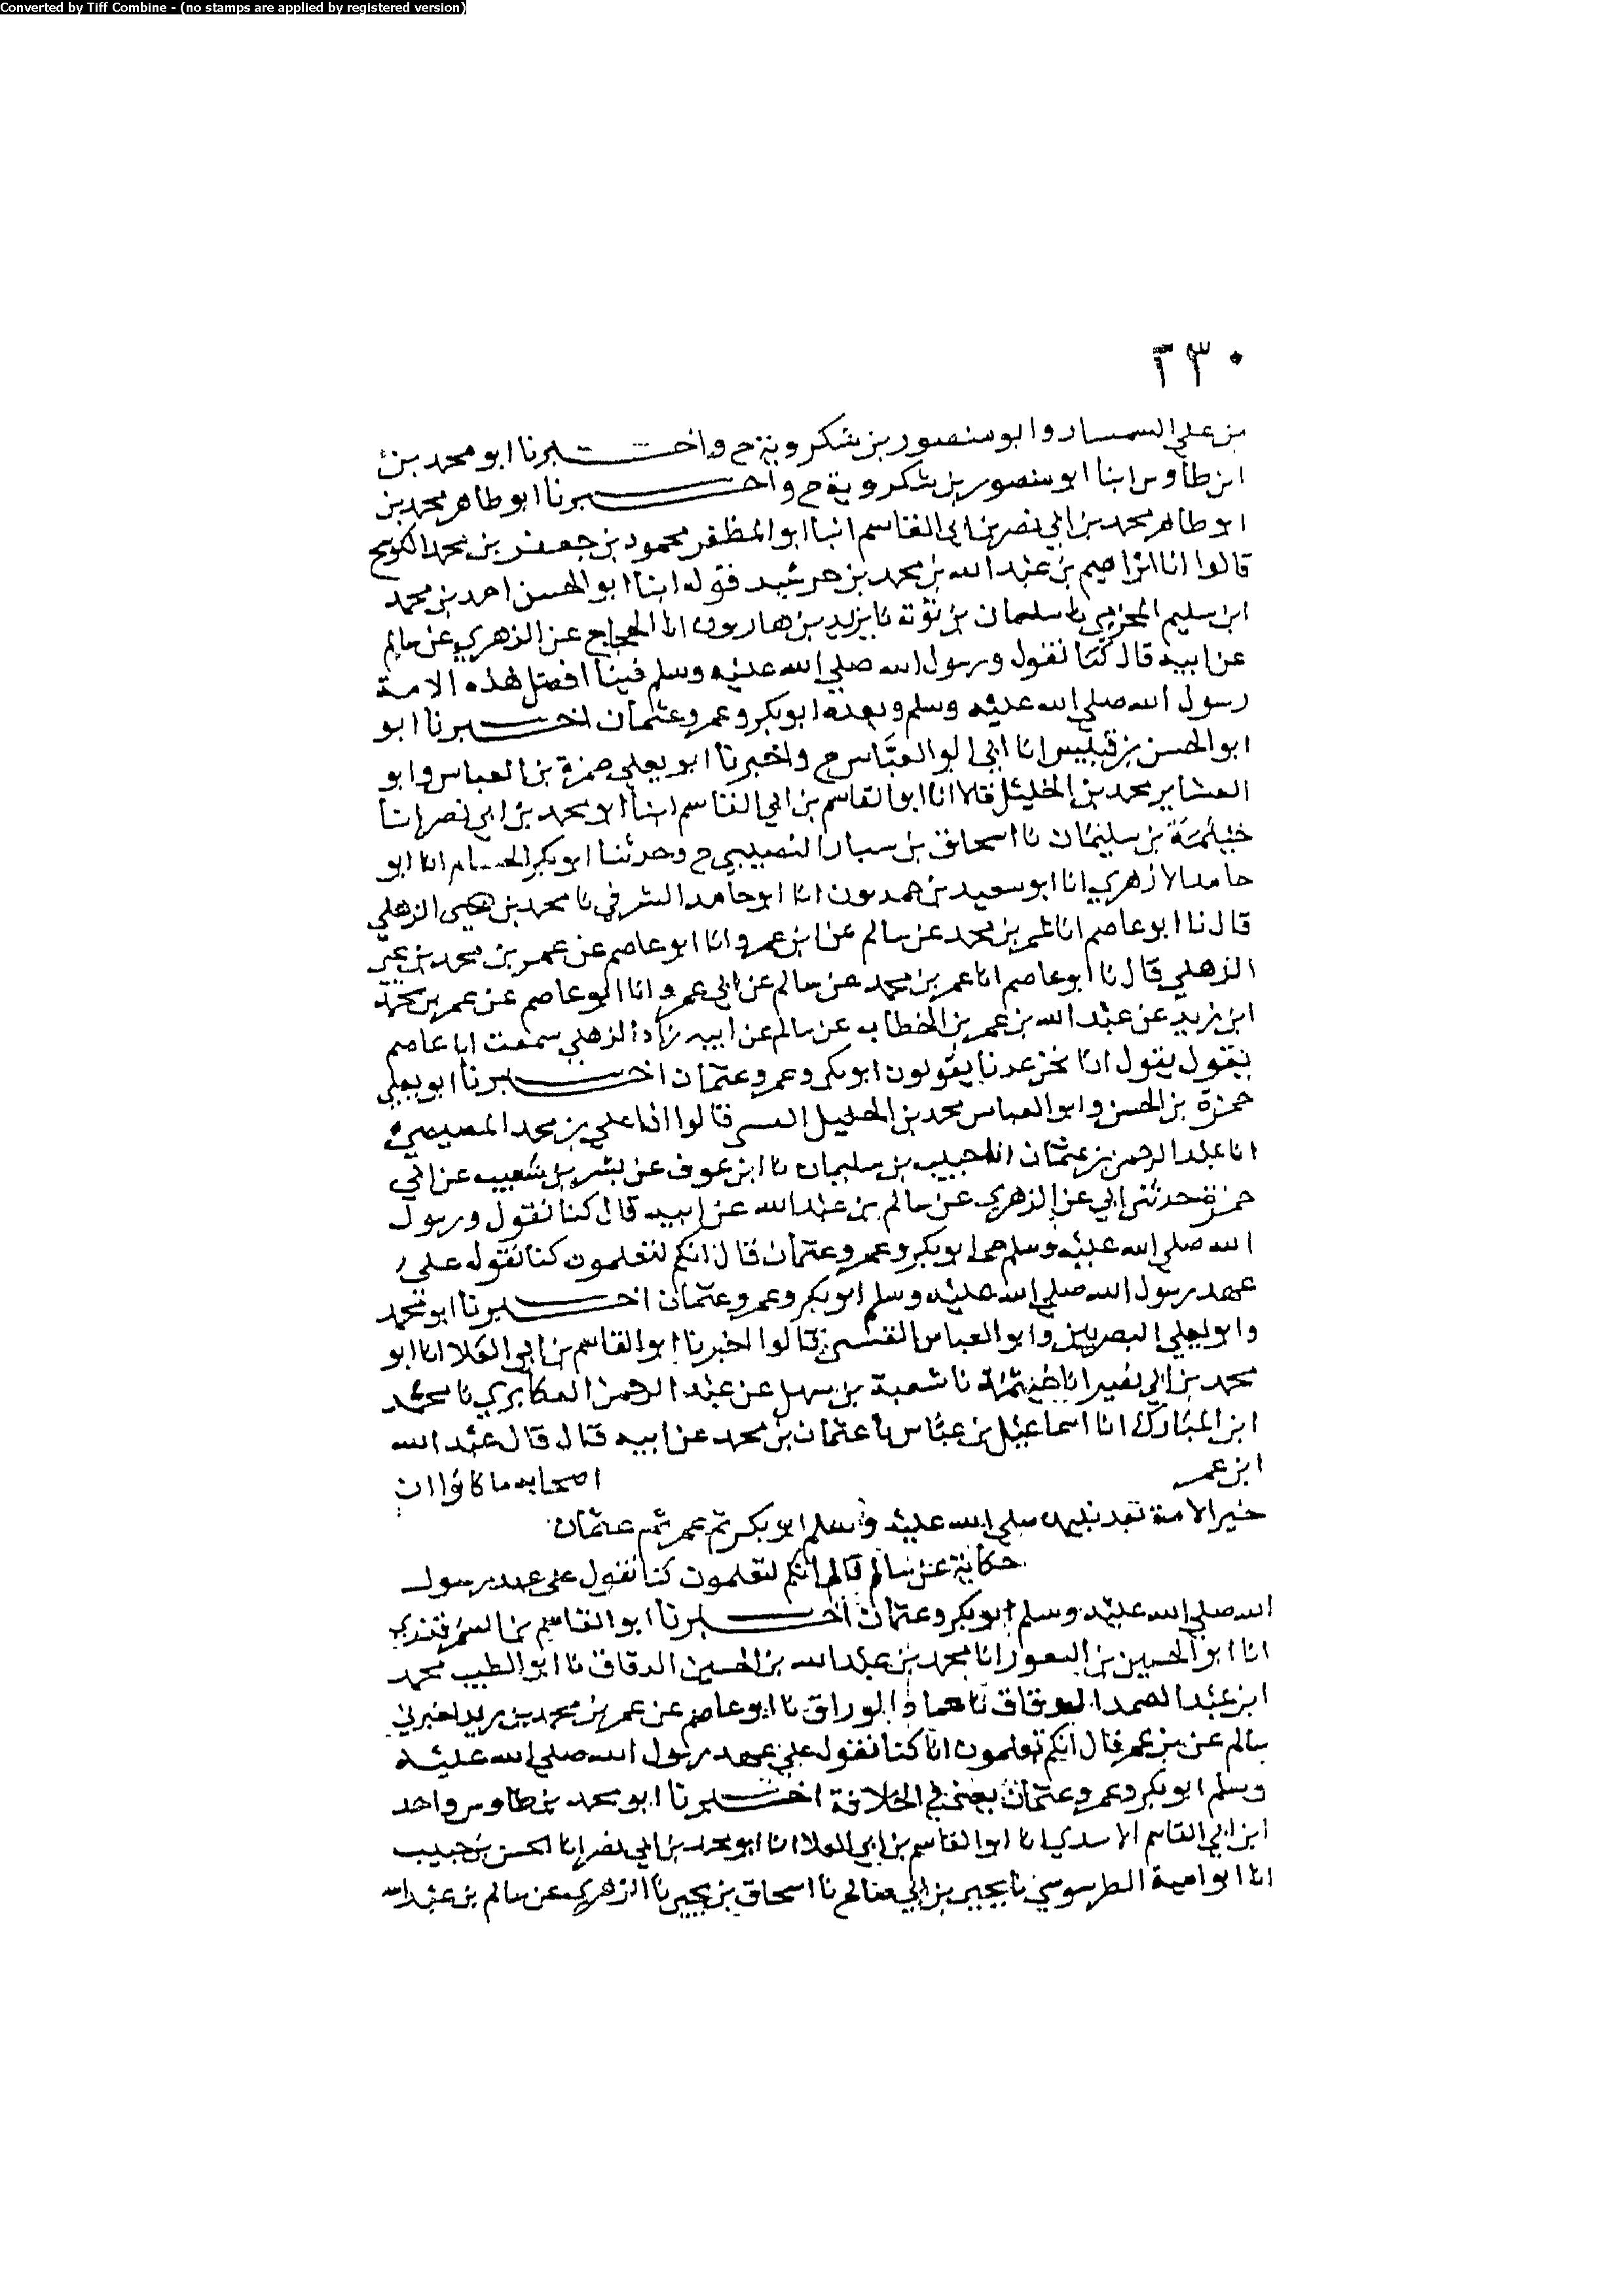 Converted by Tiff Combine - (no stamps are applied by registered version)
٢٣٠
بن علي السمسار وابو منصور بن شكروية ح واخبرنا ابو محمد بن
ابن طاوس ابنا ابو منصور بن شكروية ح واخبرنا ابو طاهر محمد بن
ابو طاهر محمد بن ابي نصر بن ابي القاسم انبا ابو المظفر محمود بن جعفر بن محمد الكوسج
قالوا انا ابراهيم بن عبد الله بن محمد بن خرشيد قوله ابنا ابو الحسن احمد بن محمد
ابن سليم المخرمي نا سلمان بن توبة نا يزيد بن هارون انا الحجاج عن الزهري عن سالم
عن ابيه قال كنا نقول ورسول الله صلي الله عليه وسلم فينا افضل هذه الامة
رسول الله صلي الله عليه وسلم وبعده ابو بكر وعمر وعثمان اخبرنا ابو
ابو الحسن بن قبيس انا ابي ابو العباس ح واخبرنا ابو يعلي حمزة بن العباس وابو
العشاير محمد بن الخليل قالا انا ابو القاسم بن ابي القاسم ابنا محمد بن ابي نصر ابنا
خيثمة بن سليمان نا اسحاق بن سيار النصيبي ح وحدثنا ابو بكر انا ابو
حامد الازهري انا ابو سعيد بن حمدون انا ابو حامد الشرقي نا محمد بن يحيى الذهلي
قال نا ابو عاصم انا عمر بن محمد عن سالم عن ابن عمر وانا ابو عاصم عن عمر بن محمد بن يحيى
الذهلي قال نا ابو عاصم انا عمر بن محمد عن سالم عن ابي عمر وانا ابو عاصم عن عمر بن محمد
ابن زيد عن عبد الله بن عمر بن الخطاب عن سالم عن ابيه زاد الذهلي سمعت ابا عاصم
يقول يقول ابو بكر وعمر وعثمان اخبرنا ابو يعلي
حمزة بن الحسن وابو العباس محمد بن الخليل قالوا انا علي بن محمد المصيصي
انا عبد الرحمن بن عثمان بن سليمان نا ابن عوف عن بشر بن شعيب عن ابي
حمزة حدثني ابي عن الزهري عن سالم بن عبد الله عن ابيه قال كنا نقول ورسول
الله صلي الله عليه وسلم حي ابو بكر وعمر وعثمان قال انكم لتعلمون كنا نقول علي
عهد رسول الله صلي الله عليه وسلم ابو بكر وعمر وعثمان اخبرنا ابو محمد
وابو يعلي البصريين وابو العباس القيسي قالوا اخبرنا ابو القاسم بن ابي العلا انا ابو
محمد بن ابي نصر انا خيثمة نا شعبة بن سهل عن عبد الرحمن العكابري نا محمد
ابن المبارك انا اسماعيل بن عياش نا عثمان بن محمد عن ابيه قال قال عبد الله
ابن عمر اصحابه ما كانوا ان
خير الامة بعد نبيها صلي الله عليه وسلم ابو بكر ثم عمر ثم عثمان
حكاية عن سالم قال انكم لتعلمون كنا نقول علي عهد رسول
الله صلي الله عليه وسلم ابو بكر وعثمان اخبرنا ابو القاسم بن السمرقندي
انا ابو الحسين بن النقور انا محمد بن عبد الله بن الحسين الدقاق نا ابو الطيب محمد
ابن عبد الصمد الدقاق نا حماد الوراق نا ابو عاصم عن عمر بن محمد بن زيد اخبرني
سالم عن بن عمر قال انكم تعلمون انا كنا نقول علي عهد رسول الله صلي الله عليه
وسلم ابو بكر وعمر وعثمان يعني في الخلافة اخبرنا ابو محمد بن طاوس واحد
ابن ابي القاسم الاسدي نا ابو القاسم بن ابي العلا انا ابو محمد بن ابي نصر انا الحسن بن حبيب
انا ابو امية الطرسوسي نا يحيى بن ابي صالح نا اسحاق بن يحيى نا الزهري عن سالم بن عبد الله